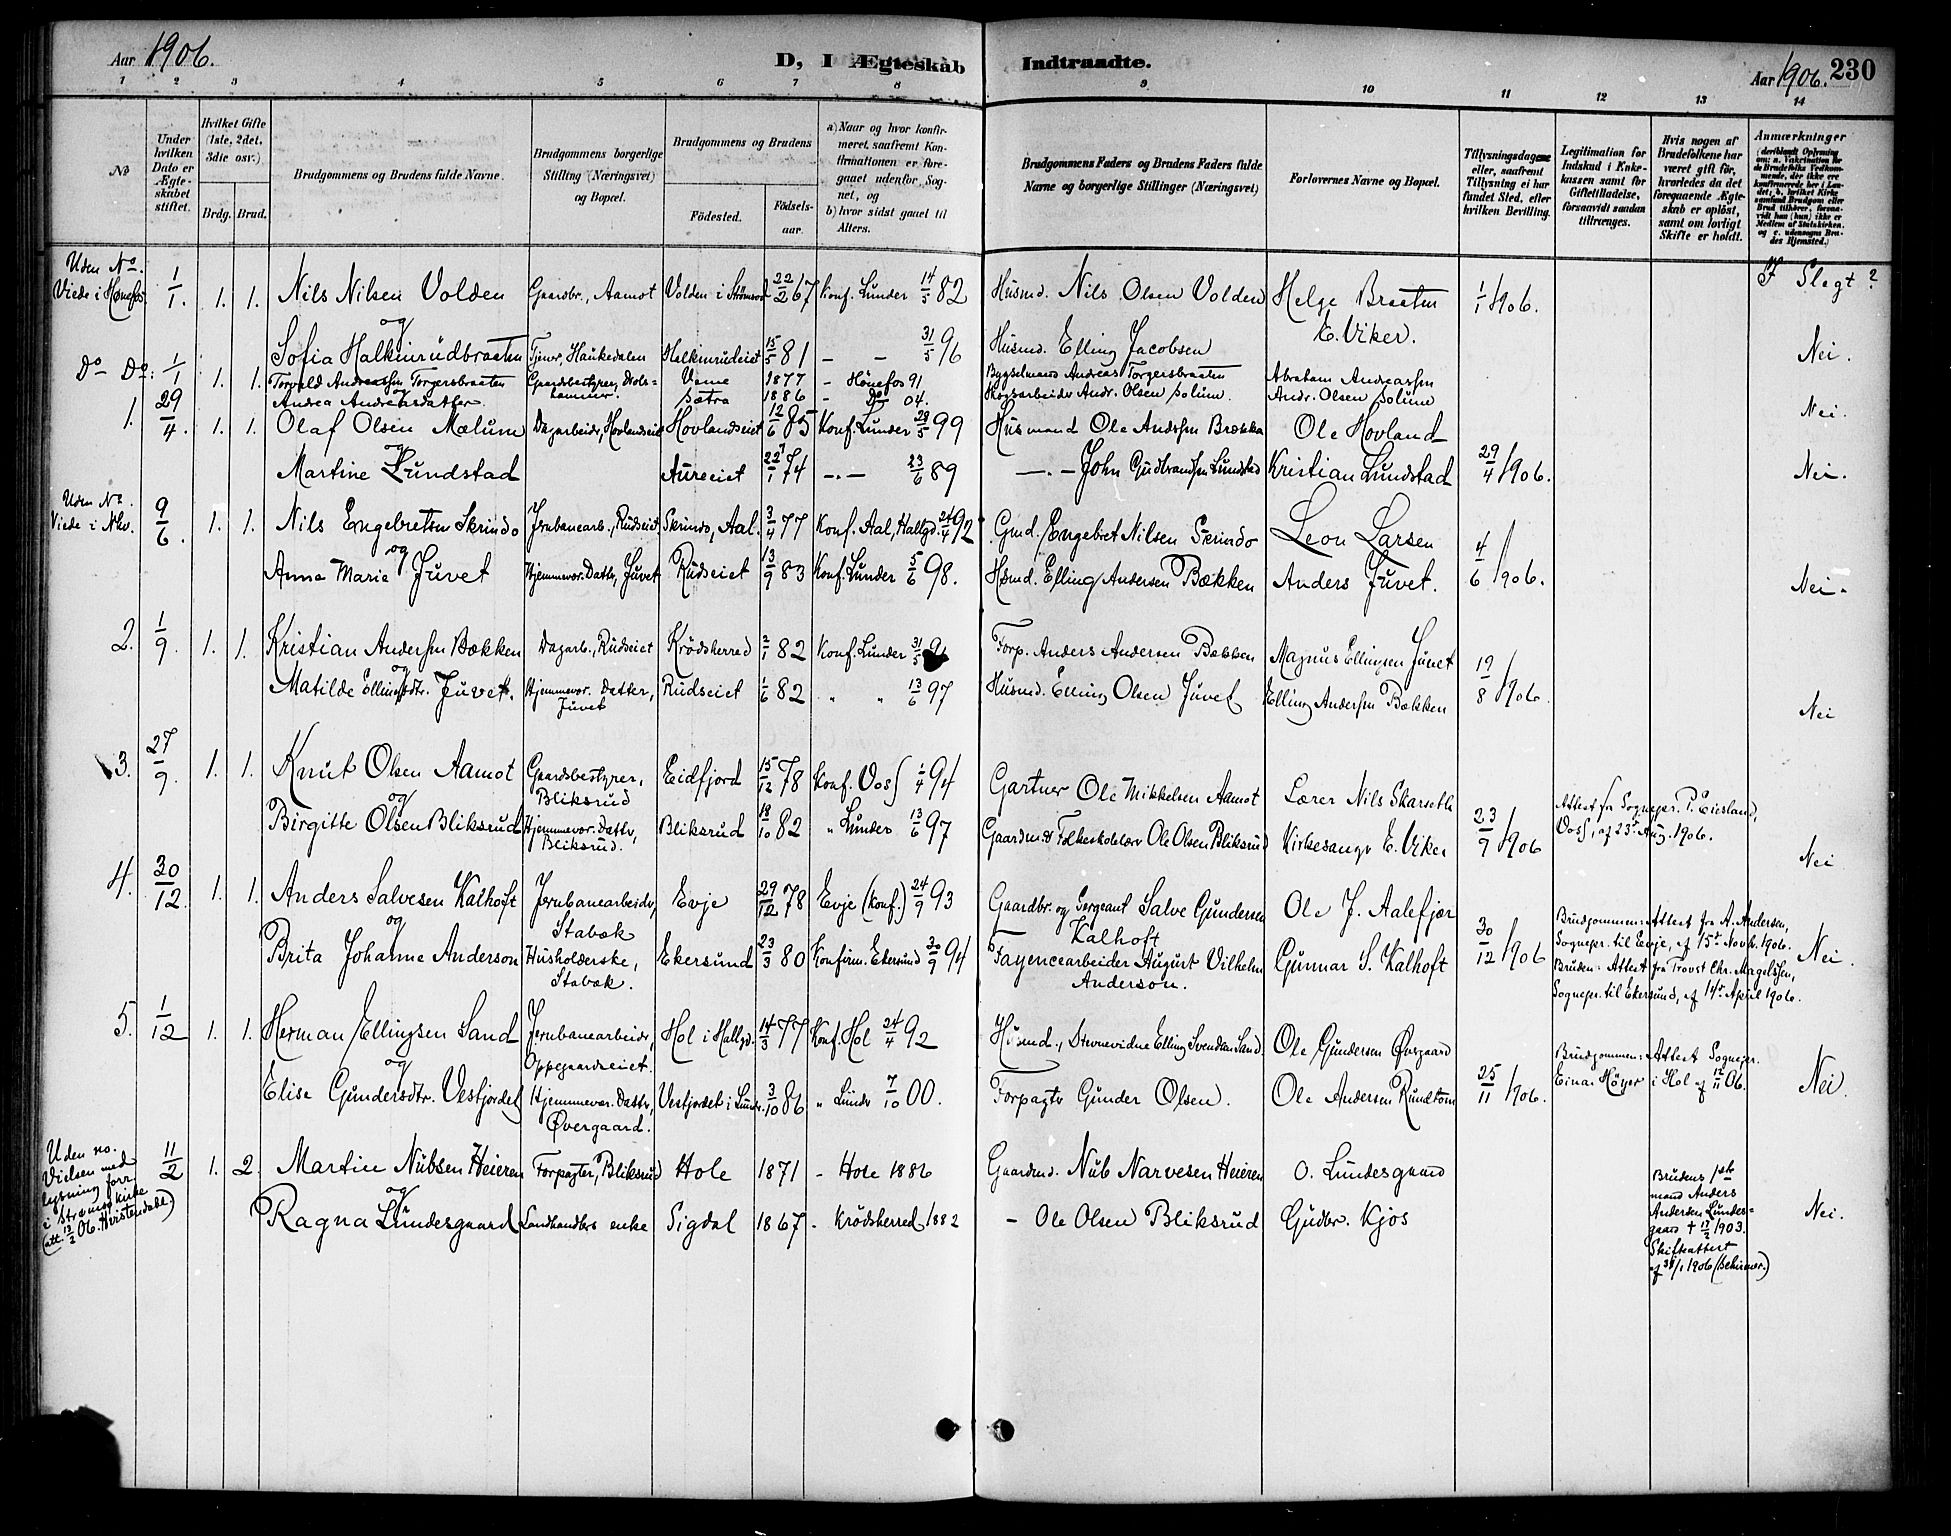 Aar 1906.
D, I Ægteskab Indtraadte.
Aar 1906. 230
1 2 3 4 5 6 7 8 9 10 11 12 13 14
No
Under hvilken Dato er Ægteskabet stiftet.
Hvilket Gifte (1ste, 2det, 3die osv.)
Brdg. Brud.
Brudgommens og Brudens fulde Navne.
Brudgommens borgerlige Stilling (Næringsvei) og Bopæl.
Brudgommens og Brudens
Fødested. Fødselsaar.
a) Naar og hvor konfirmeret, saafremt Konfirmationen er foregaaet udenfor Sognet, og
b) hvor sidst gaaet til Alters.
Brudgommens Faders og Brudens Faders fulde Navne og borgerlige Stillinger (Næringsvei)
Forlovernes Navne og Bopæl.
Tillysningsdagene eller, saafremt Tillysning ei har fundet Sted, efter hvilken Bevilling.
Legitimation for Indskud i Enkekassen samt for Giftetilladelse, forsaavidt saadan tiltrænges.
Hvis nogen af Brudefolkene har været gift før, hvorledes da det foregaaende Ægteskab er opløst, samt om lovligt Skifte er holdt.
Anmærkninger
Uden No. Viede i Hønefos 1/1. 1. 1. Nils Nilsen Volden Gaardbr., Aamot Volden i Strømsod 22/2 67 Konf. Lunder 14/5 82 Husmd. Nils Olsen Volden Helge Braaten 1/1 1906. I Slegt?
og
Sofia Halkinrudbraaten Tjener, Haukedalen Halkinrudeiet 15/5 81 - - 31/5 96 Husmd. Elling Jacobsen E. Viker. Nei.
Do Do: 1/1 1. 1. Torvald Andreassen Torgersbraaten Gaardbestyrer, Veme 1877 - Hønefos 91 Bygselmand Andreas Torgersbraaten Abraham Andreassen
Andrea Andreasdatter Sætra 1886 - Do 04. Skogsarbeider Andr. Olsen Solum. Andr. Olsen Solum Nei.
1. 29/4. 1. 1. Olaf Olsen Mælum Dagarbeider, Hovlandseiet Hovlandseiet 12/6 85 Konf. Lunder 28/5 99 Husmand Ole Andersen Brække Ole Hovland
og
Martine Lundstad Aureeiet 22/1 74 -.- 23/6 89 -.- John Gudbrandsen Lundstad Kristian Lundstad 29/4 1906. Nei.
Uden No. Viede i Nkv. 9/6. 1. 1. Nils Engebretsen Skrindo Jernbanearb., Rudseiet. Skrindo, Aal. 3/4 77 Konf. Aal, Hallgd. 24/4 92 Gmd. Engebret Nilsen Skrindo Leon Larsen
og
Anne Marie Juvet Hjemmevær. Datter, Juvet Rudseiet 13/9 83 Konf. Lunder 5/6 98. Hsmd. Elling Andersen Bækken Anders Juvet. 4/6 1906. Nei.
2. 1/9. 1. 1. Kristian Andersen Bækken Dagarb., Rudseiet Krødsherred 2/1 82 Konf. Lunder 31/5 96 Forp. Anders Andersen Bækken Magnus Ellingsen Juvet
og
Matilde Ellingsdtr. Juvet. Hjemmevær. Datter, Juvet Rudseiet 1/6 82 " " 13/6 97 Husmd. Elling Olsen Juvet Elling Andersen Bækken 19/8 1906. Nei
3. 27/9. 1. 1. Knut Olsen Aamot Gaardsbestyrer, Bliksrud Eidfjord 15/12 78 Konf. Voss 1/4 94 Gartner Ole Mikkelsen Aamot Lærer Nils Skarseth
og
Birgitte Olsen Bliksrud Hjemmevær. Datter, Bliksrud. Bliksrud 18/10 82 " Lunder 13/6 97 Gaardm. & Folkeskolelærer Ole Olsen Bliksrud Kirkesanger E. Viker 23/9 1906 Attest fra Sognepr. P. Eiesland, Voss, af 23de Aug. 1906. Nei
4. 30/12. 1. 1. Anders Salvesen Kalhoft Jernbanearbeider, Stabæk Evje 29/12 78 Evje (Konf.) 24/9 93 Gaardbr. og Sergeant Salve Gundersen Kalhoft Ole J. Aalefjær
og
Brita Johanne Anderson Husholderske, Stabæk. Ekersund 23/3 80 Konfirm. Ekersund 30/9 94 Fayencearbeider August Vilhelm Anderson. Gunnar S. Kalhoft 30/12 1906 Brudgommen: Attest fra A. Andersen, Sognepr. til Evje, af 15de Novbr. 1906. Bruden: Attest fra Provst Chr. Magelssen, Sognepr. til Ekersund, af 14de April 1906. Nei.
5. 1/12 1. 1. Herman Ellingsen Sand Jernbanearbeider, Oppegaardseiet. Hol i Hallgd. 14/3 77 Konf. Hol 24/4 92 Husmd., Stevnevidne Elling Svendsen Sand. Ole Gundersen Øvrgaard
og
Elise Gundersdtr. Vestjordet Hjemmevær. Datter, Øvergaard. Vestjordet i Lunder. 3/10 86 " Lunder 7/10 00. Forpagter Gunder Olsen. Ole Andersen Rundtom 25/11 1906. Brudgommen: Attest Sognepr. Einar Høyer i Hol af 12/11 06. Nei.
Uden no. Vielsen med lysning forr. i Strømsø kirke (att. 13/2 06. Kristendahl.) 11/2 1. 2. Martin Nubsen Heieren Forpagter, Bliksrud Hole 1871 - Hole 1886 Gaardmd. Nub Narvesen Heieren O. Lundesgaard
og
Ragna Lundesgaard Landhandlers enke Sigdal 1867 - Krødsherred 1882 - Ole Olsen Bliksrud Gudbr. Kjøs Brudens 1ste mand Anders Andersen Lundesgaard † 17/2 1903. Skifteattest af 31/1 1906 Nei.